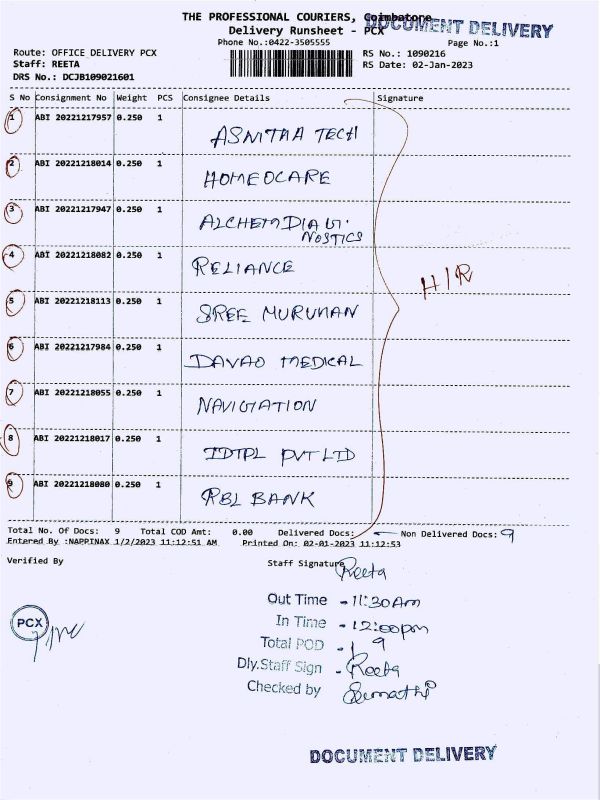 THE PROFESSIONAL COURIERS, Coimbatore
DOCUMENT DELIVERY
Delivery Runsheet - PCX
Phone No.:0422-3505555
Page No.:1
Route: OFFICE DELIVERY PCX
RS No.: 1090216
Staff: REETA
RS Date: 02-Jan-2023
DRS No.: DCJB109021601
S No Consignment No Weight PCS Consignee Details Signature
1 ABI 20221217957 0.250 1 ASMITHA TECH
2 ABI 20221218014 0.250 1 HOMEOCARE
3 ABI 20221217947 0.250 1 ALCHEM DIAG.
NOSTICS
4 ABI 20221218082 0.250 1 RELIANCE
H/R
5 ABI 20221218113 0.250 1 SREE MURUHAN
6 ABI 20221217984 0.250 1 DAVAO MEDICAL
7 ABI 20221218055 0.250 1 NAVIGATION
8 ABI 20221218017 0.250 1 IDTPL PVT LTD
9 ABI 20221218080 0.250 1 RBL BANK
Total No. Of Docs: 9 Total COD Amt: 0.00 Delivered Docs: Non Delivered Docs: 9
Entered By :NAPPINAX 1/2/2023 11:12:51 AM Printed On: 02-01-2023 11:12:53
Verified By
Staff Signature Reeta
Out Time - 11:30 Am
PCX
In Time - 12:00pm
Total POD - 9
Dly.Staff Sign - Reeta
Checked by Sumathi
DOCUMENT DELIVERY